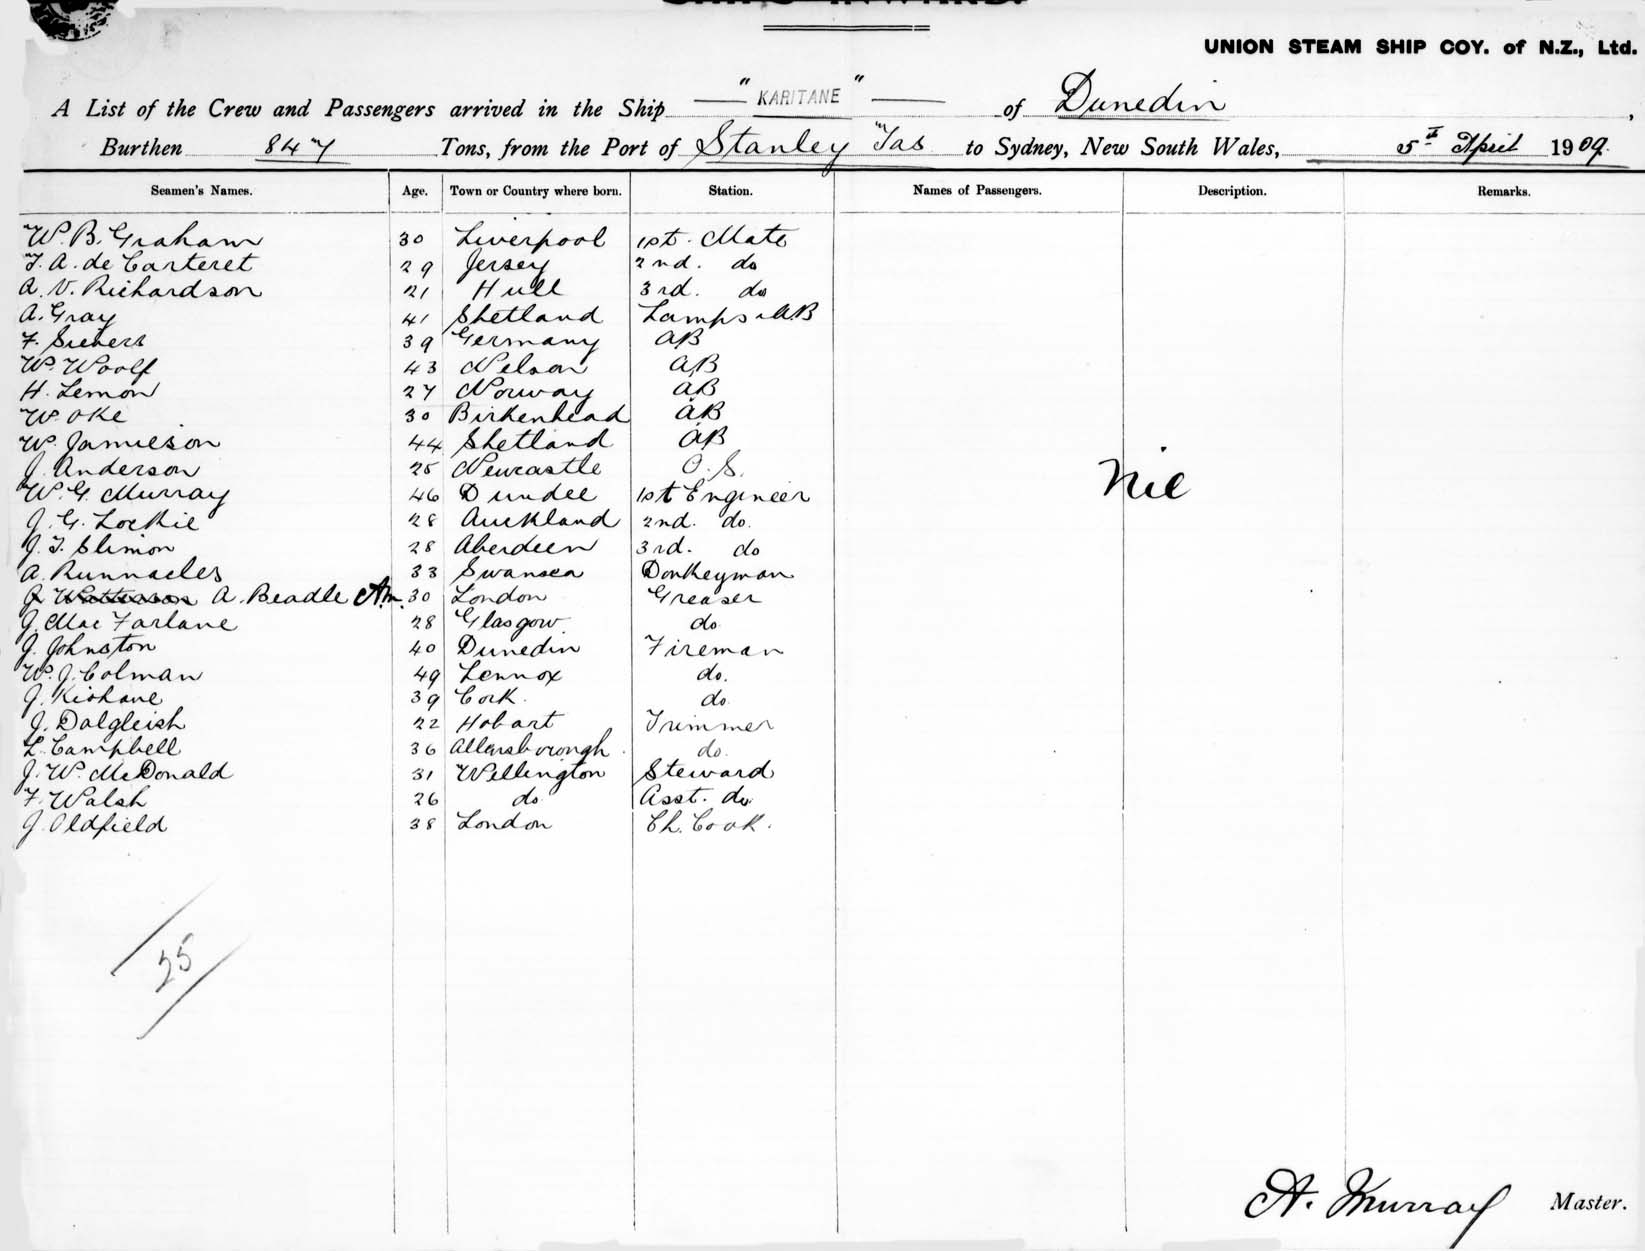 SHIPS INWARD.
UNION STEAM SHIP COY. of N.Z., Ltd.
A List of the Crew and Passengers arrived in the Ship "KARITANE" of Dunedin,
Burthen 847 Tons, from the Port of Stanley Tas to Sydney, New South Wales, 5th April 1909.
Seamen's Names. Age. Town or Country where born. Station. Names of Passengers. Description. Remarks.
W. B. Graham 30 Liverpool 1st. Mate
T. A. de Carteret 29 Jersey 2nd. do
A. V. Richardson 21 Hull 3rd. do
A. Gray 41 Shetland Lamps & AB
F. Sievers 39 Germany AB
W. Woolf 43 Nelson AB
H. Lemon 27 Norway AB
W. Oke 30 Birkenhead AB
W. Jamieson 44 Shetland AB
J. Anderson 25 Newcastle O.S.
W. G. Murray 46 Dundee 1st Engineer
Nil
J. G. Lockie 28 Auckland 2nd. do.
J. T. Slimon 28 Aberdeen 3rd. do
A. Runnacles 33 Swansea Donkeyman
J. Watterson A. Beadle A.M. 30 London Greaser
J. MacFarlane 28 Glasgow do
J. Johnston 40 Dunedin Fireman
W. J. Colman 49 Lennox do.
J. Kishane 39 Cork. do
J. Dalgleish 22 Hobart Trimmer
L. Campbell 36 do.
J. W. McDonald 31 Wellington Steward
F. Walsh 26 do Asst. do
J. Oldfield 38 London Ch. Cook.
25
A. Murray Master.